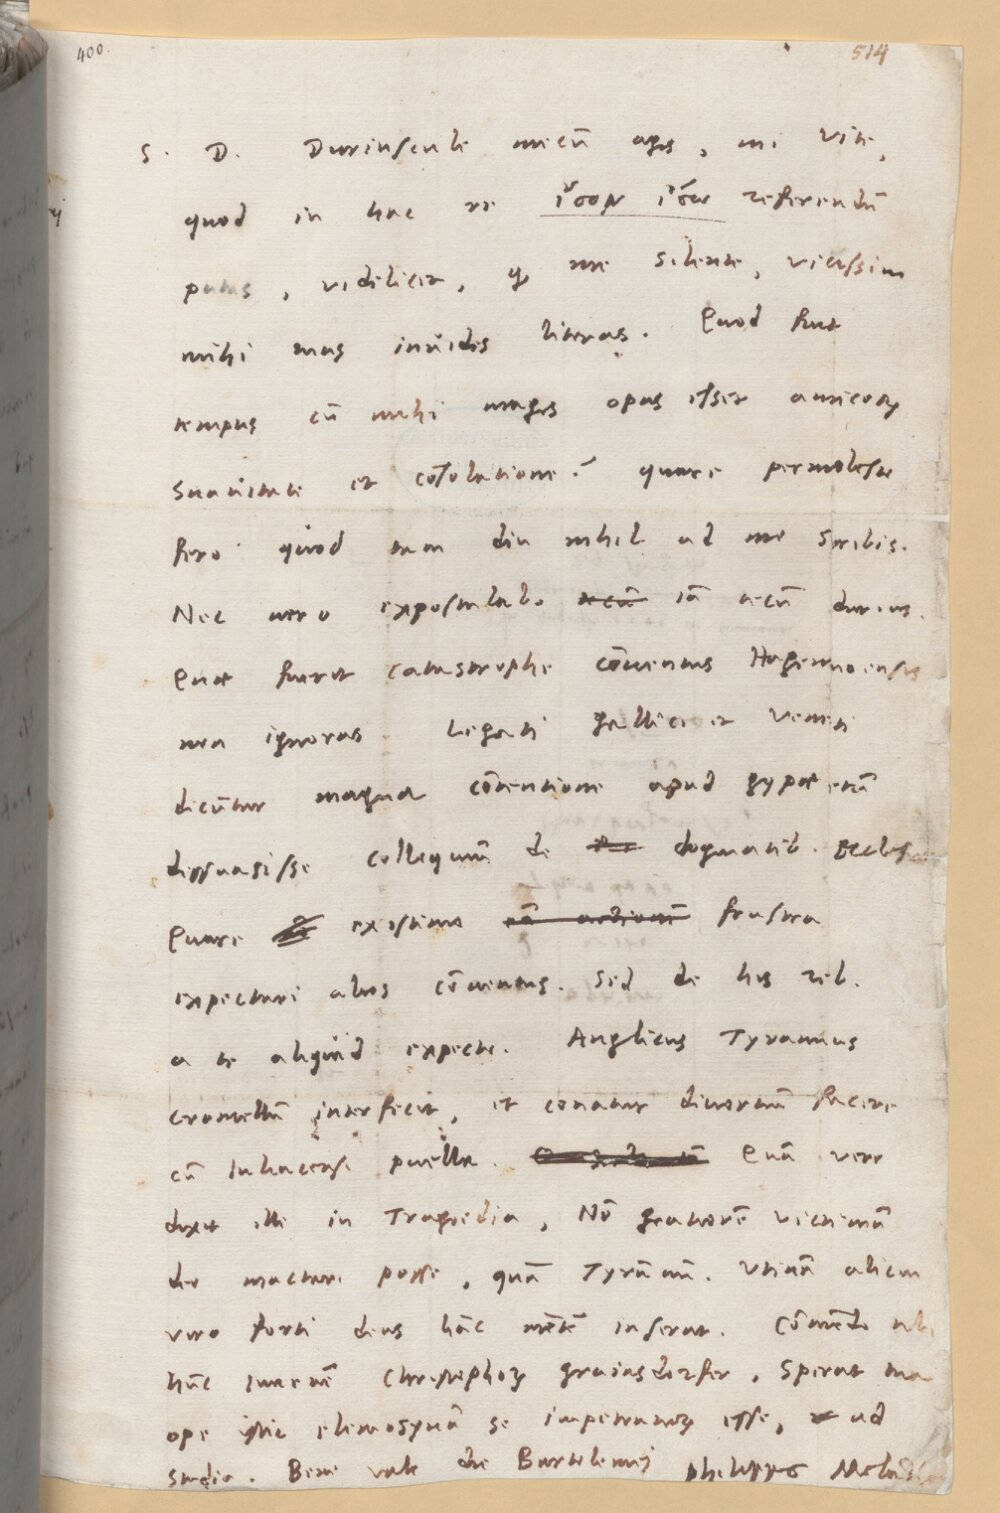 400.
514
S. D. Duriuscule mecū agis, mi Vite,
quod in hac re ἴσον ἴσῳ referendū
putas, videlicet, ꝙ me silente, vicissim
mihi tuas invides literas. Quod fuit
tempus cū mihi magis opus esset amicoꝝ
Suavitate et cōsolatione? quare permoleste
fero quod tam diu nihil ad me Scribis.
Nec vero expostulabo tecū iā tecū durius.
Quæ fuerit catastrophe cōventus Hagenoensis
non ignoras. Legati gallici et Veneti
dicūtur magna cōtentione apud
dissuasisse colloquiū de dogmatib. Eccles
Quare existimo frustra
expectari alios cōventus. Sed de his reb.
a te aliquid expecto. Anglicus Tyrannus
Cromvellū interfecit, et conatur divortiū facere
cū Iuliacensi puella. Quā vere
dixit ille in Tragoedia, Nō gratiorē victimā
deo mactari posse, quā Tyrānū. Utinā alicui
viro forti deus hāc mētē inserat. Cōmēdo tibi
hūc iuvenē Christophoꝝ, Sperat tua
ope istic elemosynā se impetraturꝝ esse, ad
studia. Bene vale die Bartolemei philippus Melan